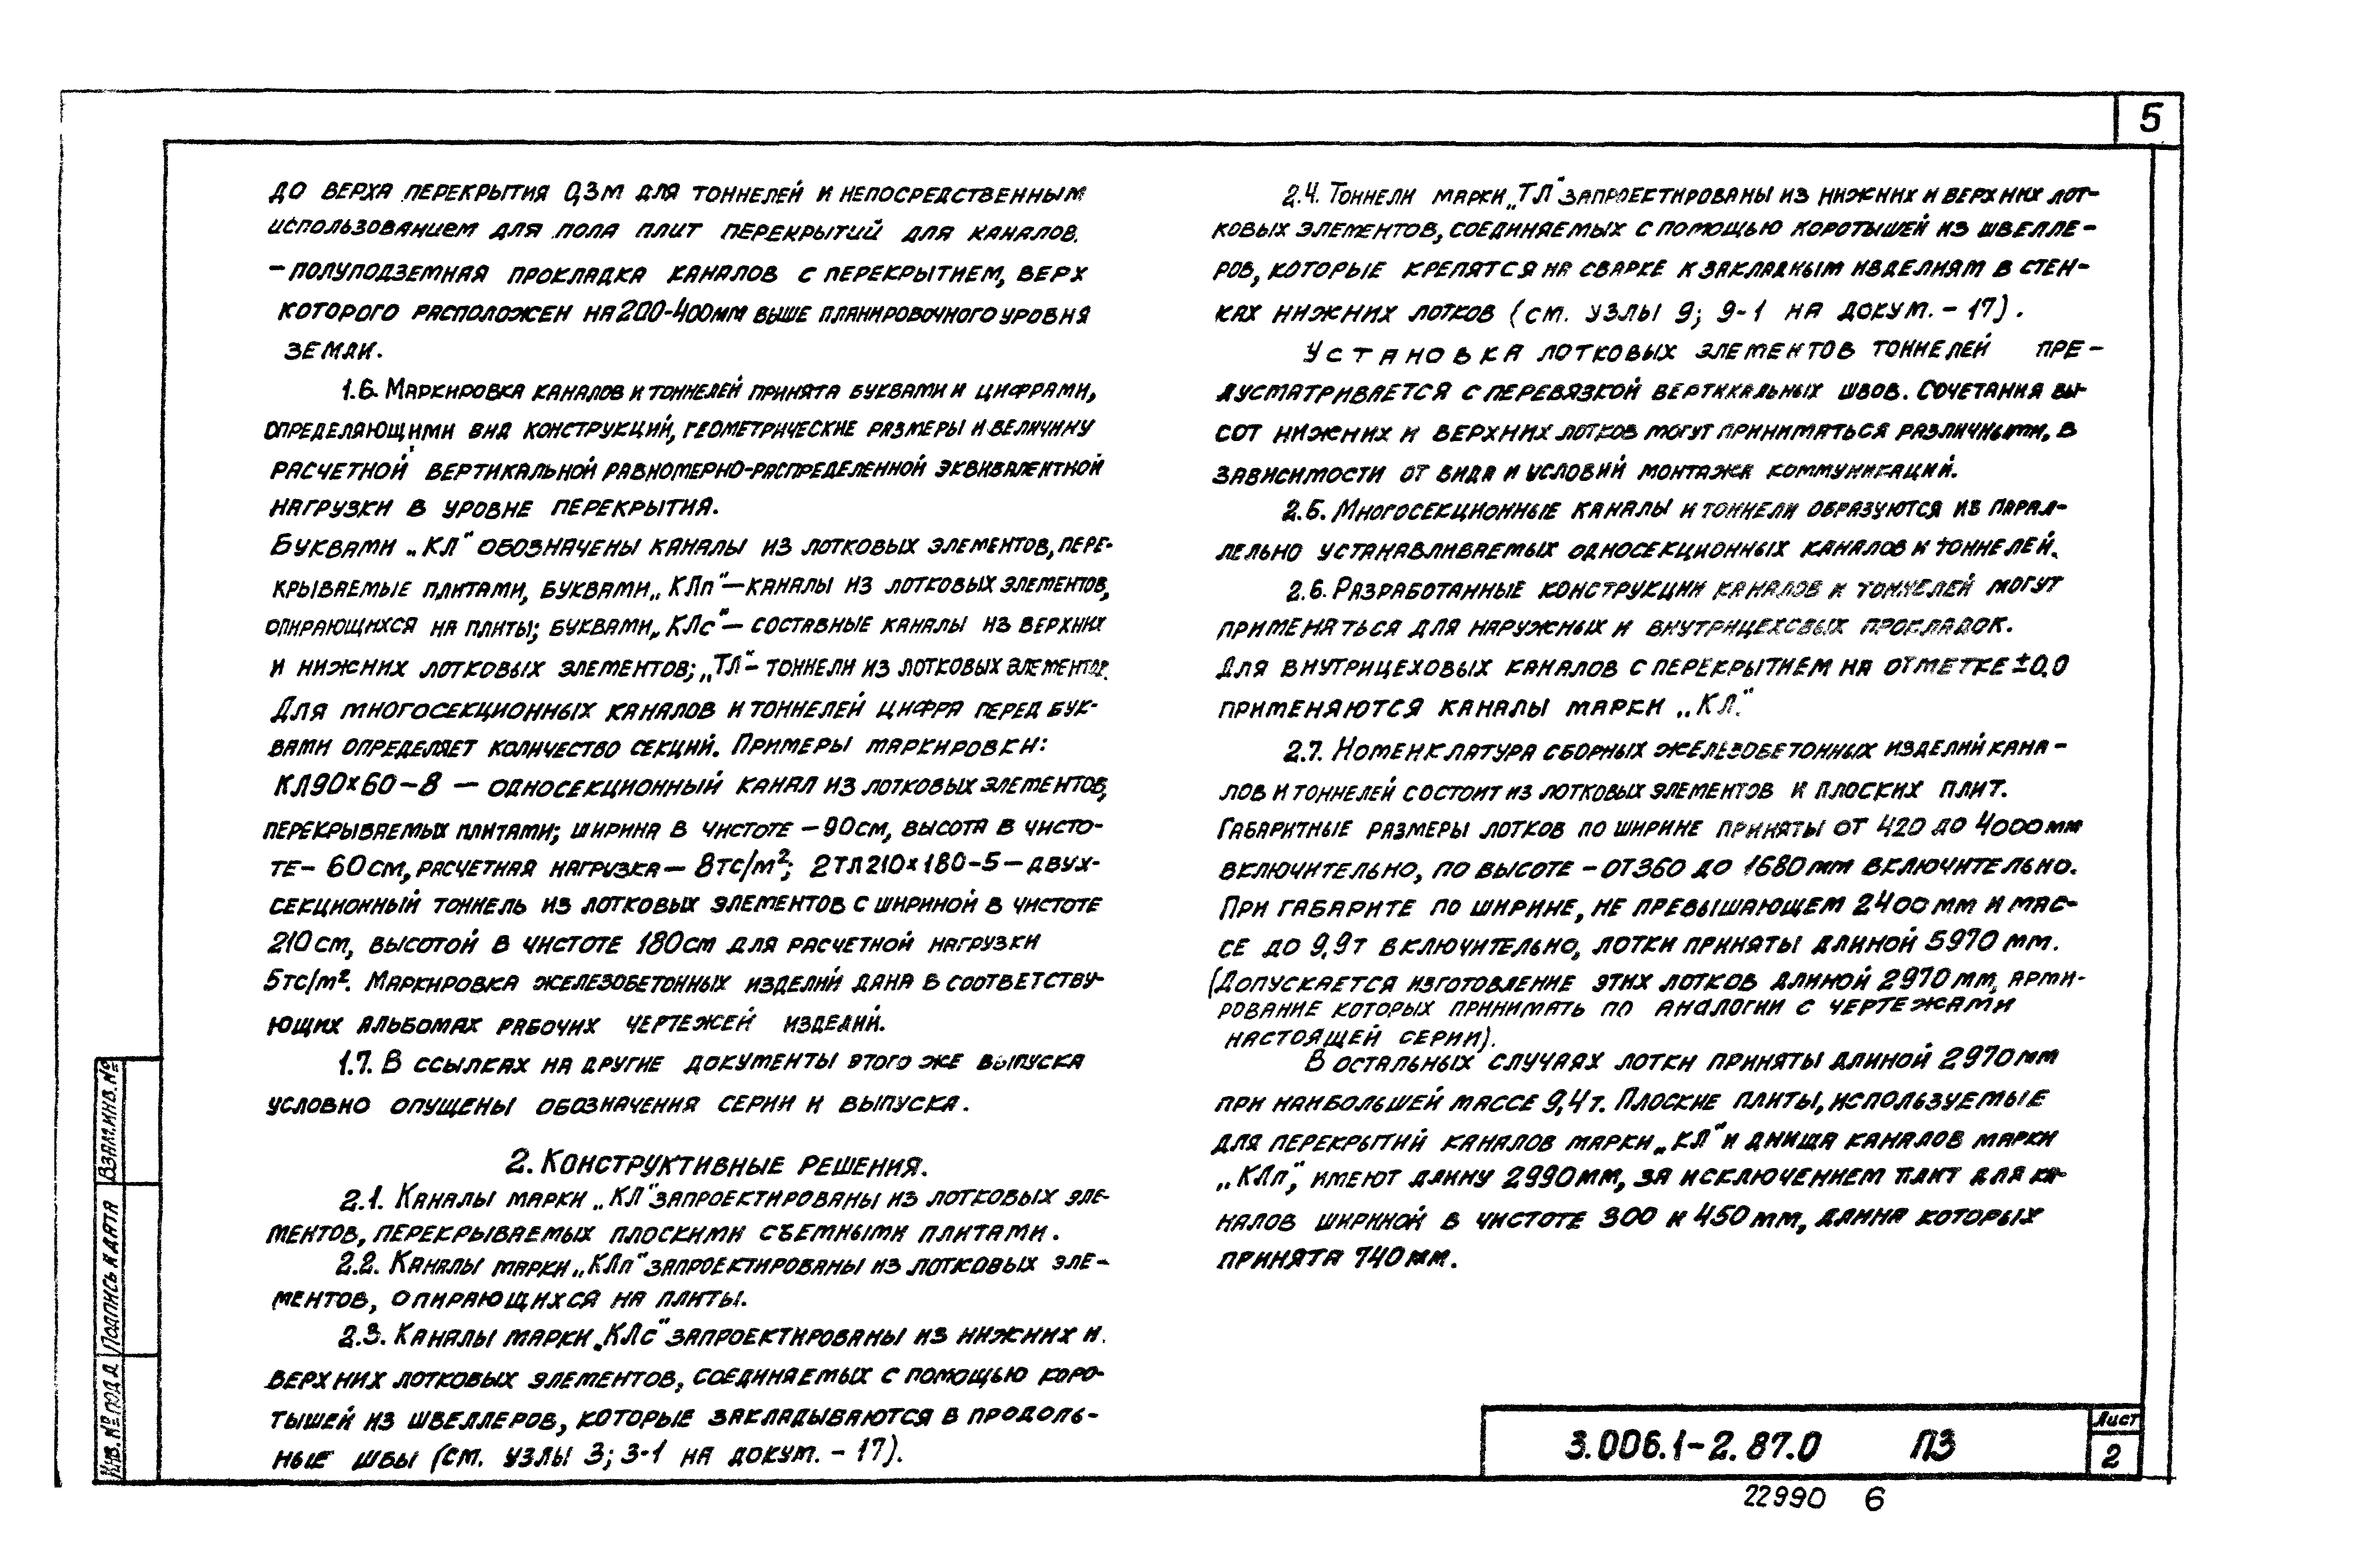 5
до верха перекрытия 0,3м для тоннелей и непосредственным
использованием для пола плит перекрытий для каналов.
– полуподземная прокладка каналов с перекрытием, верх
которого расположен на 200-400мм выше планировочного уровня
земли.
1.6. Маркировка каналов и тоннелей принята буквами и цифрами,
определяющими вид конструкций, геометрические размеры и величину
расчетной вертикальной равномерно-распределенной эквивалентной
нагрузки в уровне перекрытия.
Буквами „КЛ“ обозначены каналы из лотковых элементов, пере-
крываемые плитами, буквами „КЛп“ – каналы из лотковых элементов,
опирающихся на плиты; буквами „КЛс“ – составные каналы из верхних
и нижних лотковых элементов; „ТЛ“ – тоннели из лотковых элементов.
Для многосекционных каналов и тоннелей цифра перед бук-
вами определяет количество секций. Примеры маркировки:
КЛ90×60–8 — односекционный канал из лотковых элементов,
перекрываемых плитами; ширина в чистоте – 90см, высота в чисто-
те – 60см, расчетная нагрузка – 8тс/м²; 2ТЛ210×180-5 – двух-
секционный тоннель из лотковых элементов с шириной в чистоте
210см, высотой в чистоте 180см для расчетной нагрузки
5тс/м². Маркировка железобетонных изделий дана в соответству-
ющих альбомах рабочих чертежей изделий.
1.7. В ссылках на другие документы этого же выпуска
условно опущены обозначения серии и выпуска.
2. Конструктивные решения.
2.1. Каналы марки „КЛ“ запроектированы из лотковых эле-
ментов, перекрываемых плоскими съемными плитами.
2.2. Каналы марки „КЛп“ запроектированы из лотковых эле-
ментов, опирающихся на плиты.
2.3. Каналы марки „КЛс“ запроектированы из нижних и
верхних лотковых элементов, соединяемых с помощью коро-
тышей из швеллеров, которые закладываются в продоль-
ные швы (см. узлы 3; 3-1 на докум. – 17).
2.4. Тоннели марки „ТЛ“ запроектированы из нижних и верхних лот-
ковых элементов, соединяемых с помощью коротышей из швелле-
ров, которые крепятся на сварке к закладным изделиям в стен-
ках нижних лотков (см. узлы 9; 9-1 на докум. – 17).
Установка лотковых элементов тоннелей пре-
дусматривается с перевязкой вертикальных швов. Сочетания вы-
сот нижних и верхних лотков могут приниматься различными, в
зависимости от вида и условий монтажа коммуникаций.
2.5. Многосекционные каналы и тоннели образуются из парал-
лельно устанавливаемых односекционных каналов и тоннелей.
2.6. Разработанные конструкции каналов и тоннелей могут
применяться для наружных и внутрицеховых прокладок.
Для внутрицеховых каналов с перекрытием на отметке ±0,0
применяются каналы марки „КЛ“.
2.7. Номенклатура сборных железобетонных изделий кана-
лов и тоннелей состоит из лотковых элементов и плоских плит.
Габаритные размеры лотков по ширине приняты от 420 до 4000мм
включительно, по высоте – от 360 до 1680мм включительно.
При габарите по ширине, не превышающем 2400мм и мас-
се до 9,9т включительно, лотки приняты длиной 5970 мм.
(Допускается изготовление этих лотков длиной 2970мм, арми-
рование которых принимать по аналогии с чертежами
настоящей серии).
В остальных случаях лотки приняты длиной 2970мм
при наибольшей массе 9,4т. Плоские плиты, используемые
для перекрытий каналов марки „КЛ“ и днища каналов марки
„КЛп“, имеют длину 2990мм, за исключением плит для ка-
налов шириной в чистоте 300 и 450мм, длина которых
принята 740мм.
Взам.инв.№
Подпись и дата
Инв.№ подл
3.006.1-2.87.0 ПЗ
Лист
2
22990 6